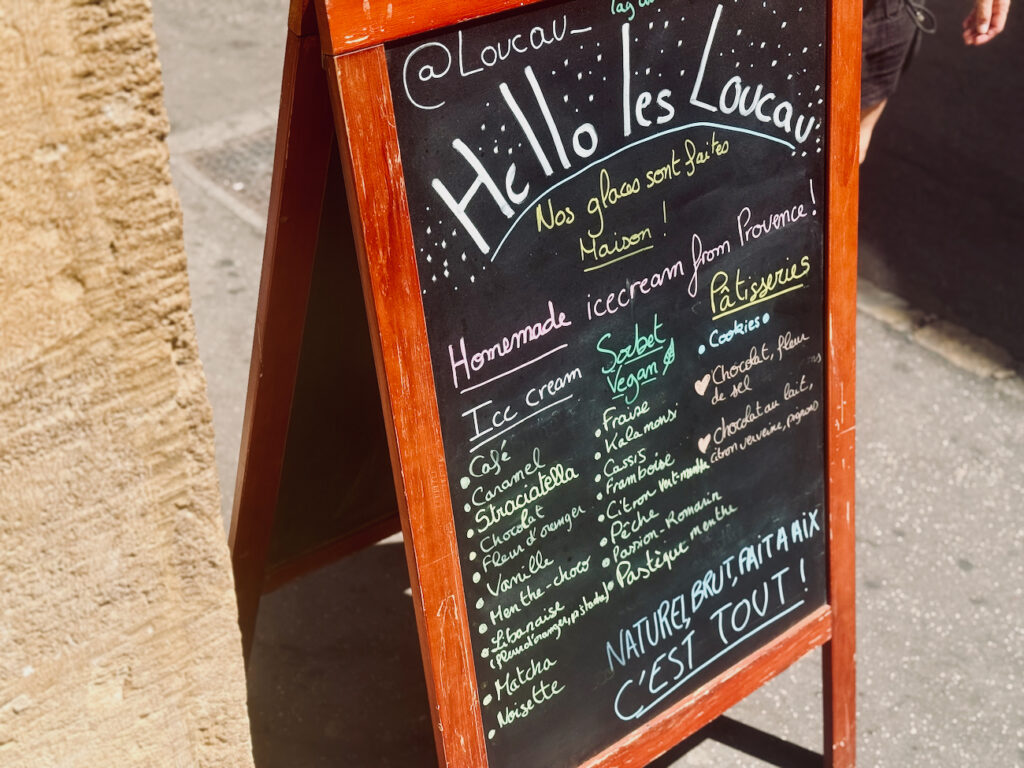 @Loucau_
Hello les Loucau
Nos glaces sont faites
Maison !
Homemade icecream from Provence !
Ice cream
• Café
• Caramel
• Straciatella
• Chocolat
• Fleur d'oranger
• Vanille
• Menthe-choco
• Libanaise
(fleur d'oranger, pistache)
• Matcha
• Noisette
Sorbet
Vegan
• Fraise
• Kalamans
• Cassis
• Framboise
• Citron vert-menthe
• Pêche
• Passion-Romarin
• Pastèque menthe
Pâtisseries
• Cookies •
Chocolat, fleur
de sel
chocolat au lait,
citron verveine, pignons
NATUREL, BRUT, FAIT A AIX
C'EST TOUT !